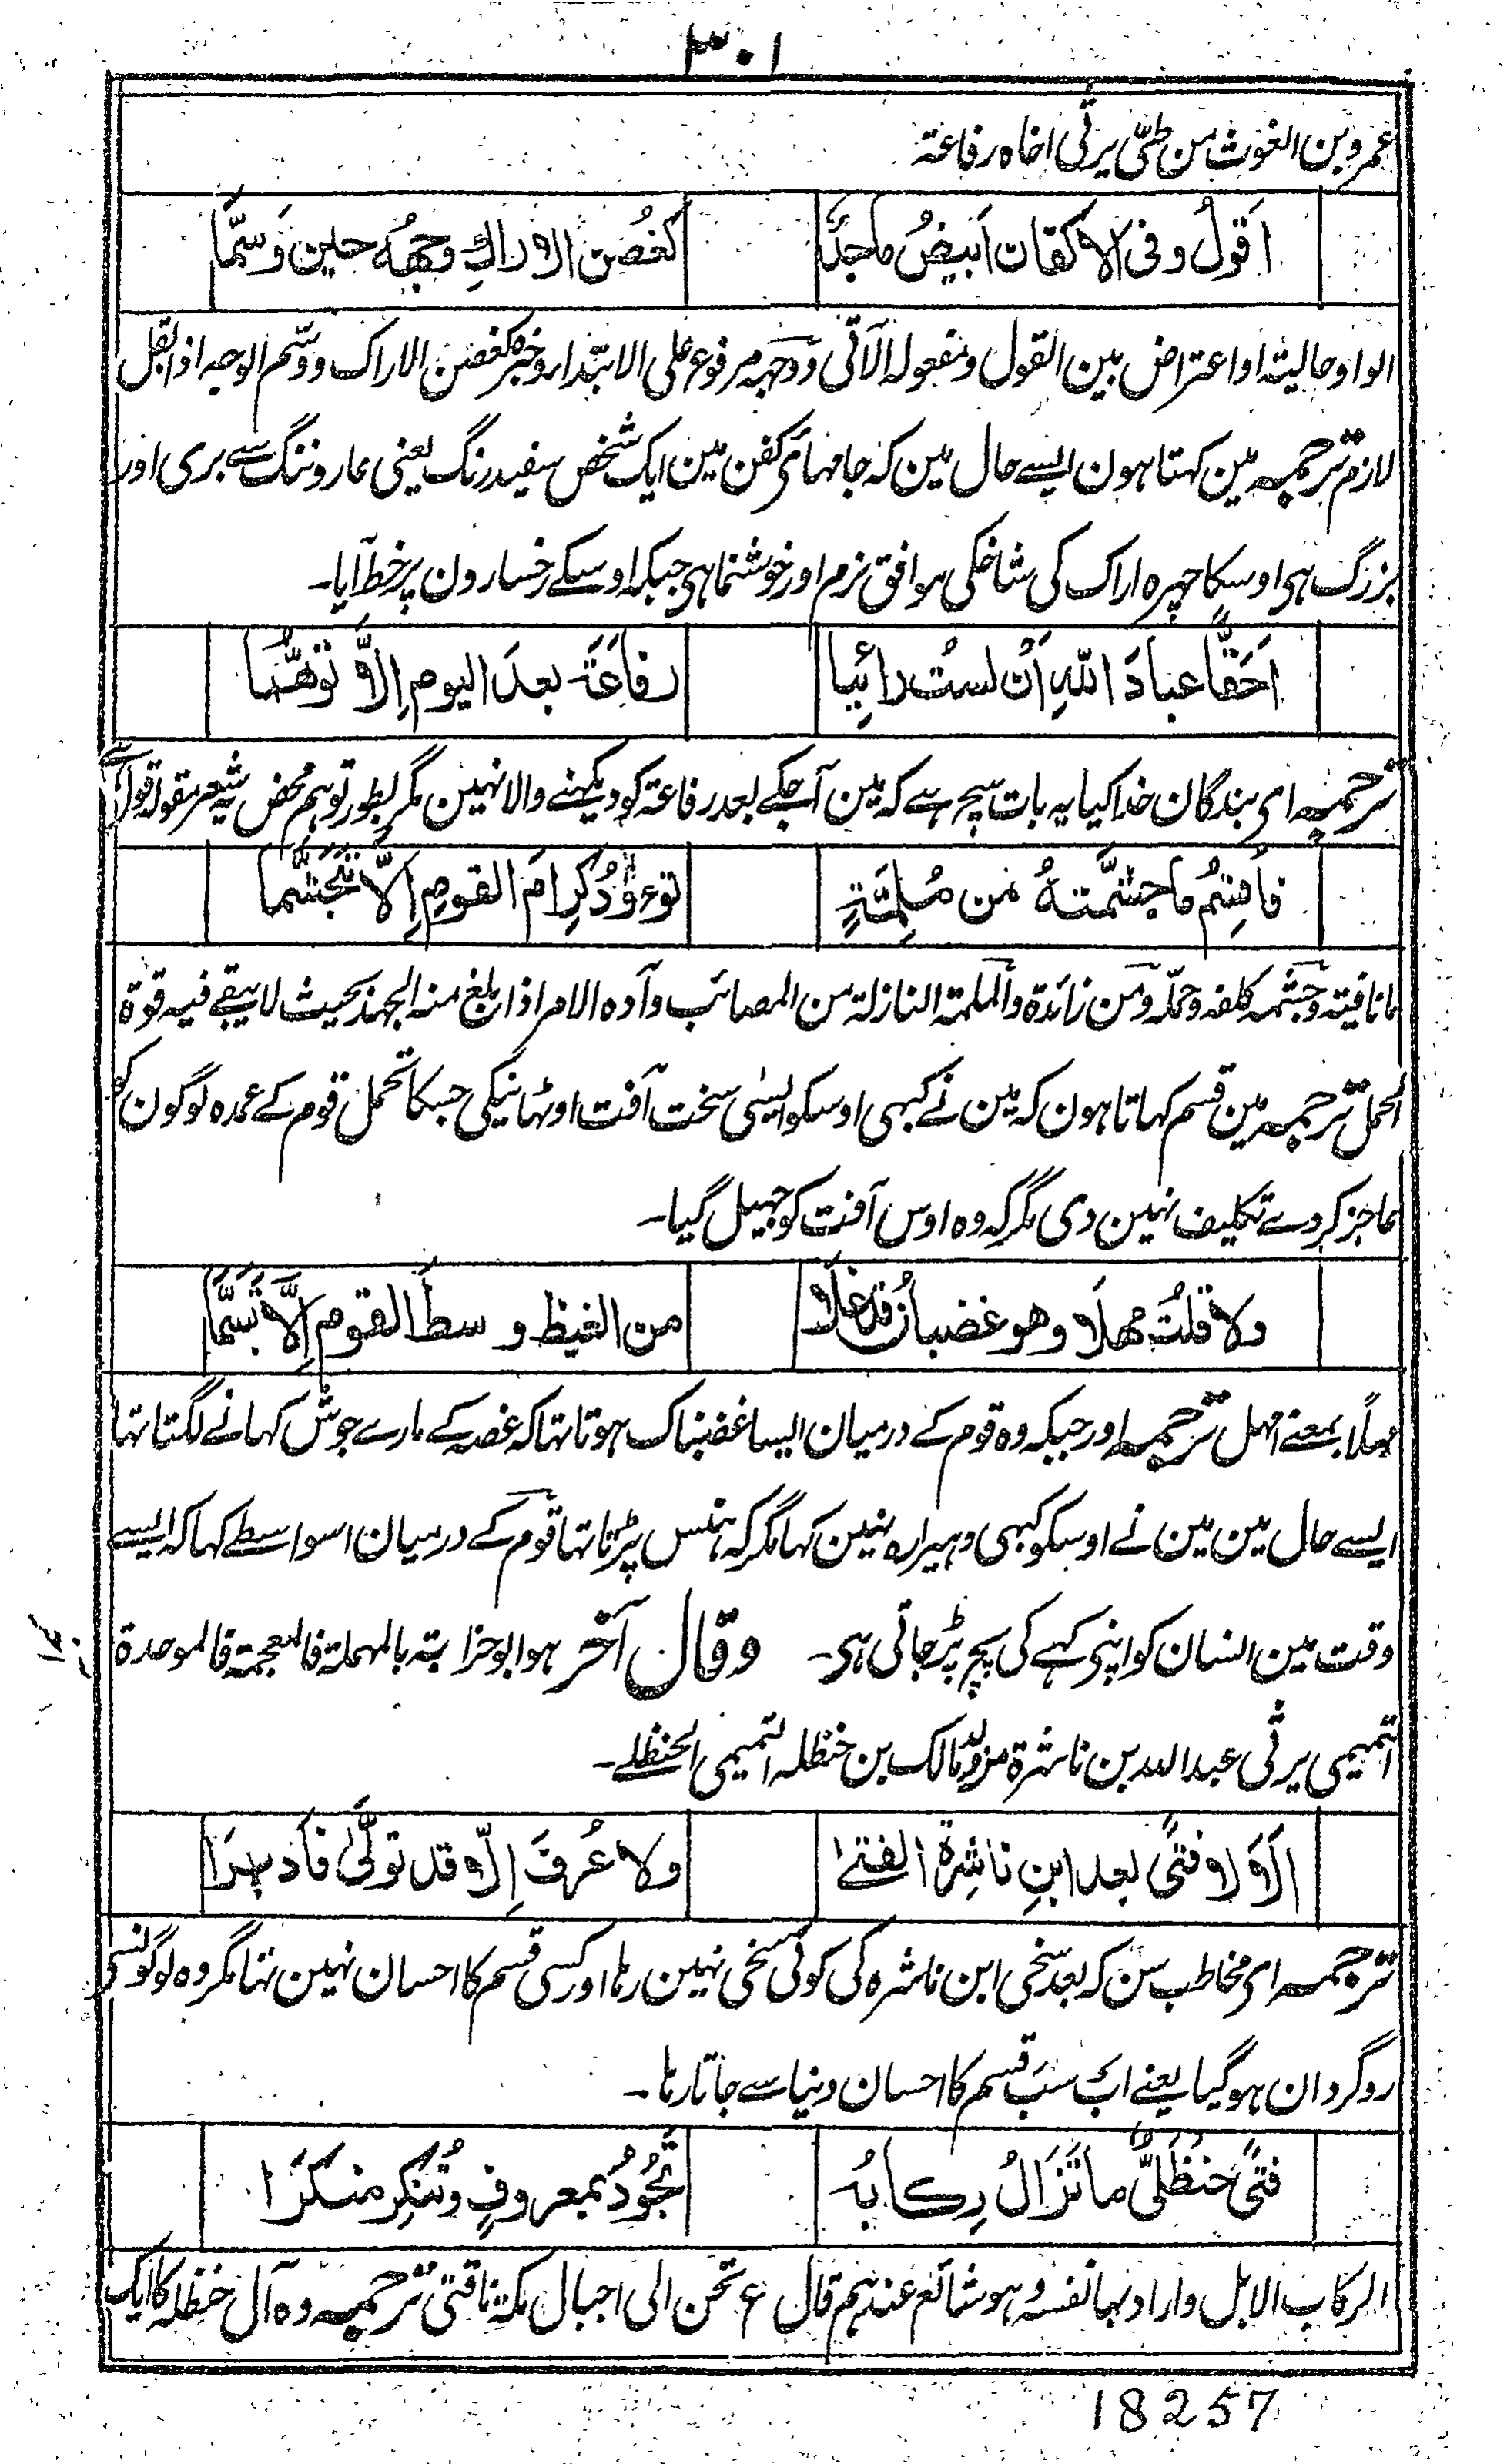 ۳۰۱
عمرو بن الغوث من طئی یرثی اخاہ رفاعۃ
اَقولُ وفی الاکفان اَبیضُ ماجدٌ کغُصن الاراکِ وجهُه حین وَسمّا
الواو حالیۃ او اعتراض بین القول ومفعولہ الآتی ووجہہ مرفوع علی الابتداء وخبرہ کغصن الاراک ووسّم الوجہ اذا بقل
لازم ترجمہ مین کہتا ہون ایسے حال مین کہ جامہای کفن مین ایک شخص سفید رنگ یعنی عار وننگ سے بری اور
بزرگ ہی اوسکا چہرہ اراک کی شاخکی موافق نرم اور خوشنما ہی جبکہ اوسکے رخسارون پر خط آیا۔
اَحَقًّا عبادَ اللهِ اَن لستُ رائیا رفاعَةَ بعدَ الیومِ اِلّا توهُّما
ترجمہ ای بندگان خدا کیا یہ بات سچ ہے کہ مین آجکے بعد رفاعۃ کو دیکہنے والا نہین مگر بطور توہم محض یہ شعر مقولہ قول ہے
فاُقسِمُ ما جشّمتهُ من مُلِمّةٍ تؤودُ کِرامَ القومِ اِلّا تَجَشّما
ما نافیۃ وجشمہ کلفہ وحمّلہ ومن زائدۃ والملمۃ النازلۃ من المصائب وآدہ الامر اذا بلغ منہ الجہد بحیث لا یبقے فیہ قوۃ
الحمل ترجمہ مین قسم کہاتا ہون کہ مین نے کبہی اوسکو ایسی سخت آفت اوٹہانیکی جسکا تحمل قوم کے عمدہ لوگون کو
عاجز کردے تکلیف نہین دی مگر کہ وہ اوس آفت کو جہیل گیا۔
ولا قلتُ مهلًا وهو غضبانُ قد غلا من الغیظ وسطَ القوم اِلّا تَبَسَّما
مہلًا بمعنے امہل ترجمہ اور جبکہ وہ قوم کے درمیان ایسا غضبناک ہوتا تہا کہ غصہ کے مارے جوش کہانے لگتا تہا
ایسے حال مین مین نے اوسکو کبہی دہیرا رہ نہین کہا مگر کہ ہنس پڑتا تہا قوم کے درمیان اسواسطے کہا کہ ایسے
وقت مین انسان کو اپنی کہے کی پچ پڑ جاتی ہی۔ وقال آخر ہو ابو حزابتہ بالمہملۃ فالمعجمۃ فالموحدۃ
التمیمی یرثی عبد اللہ بن ناشرۃ مولد مالک بن حنظلہ التمیمی الحنظلے۔
اَلا لا فتًی بعد ابنِ ناشِرةَ الفتےٰ ولا عُرفَ اِلّا قد تولّی فادبرَا
ترجمہ ای مخاطب سن کہ بعد سخی ابن ناشرہ کی کوئی سخی نہین رہا اور کسی قسم کا احسان نہین تہا مگر وہ لوگونسے
روگردان ہوگیا یعنے اب سب قسم کا احسان دنیا سے جاتا رہا۔
فتًی حنظلیٌّ ما تزالُ رِکابُه تَجُودُ بمعروفٍ وتُنکِر منکرَا
الرکاب الابل واراد بہا نفسہ وہو شائع عندہم قال ع تحن الی اجبال مکۃ ناقتی ترجمہ وہ آل حنظلہ کا ایک
18257